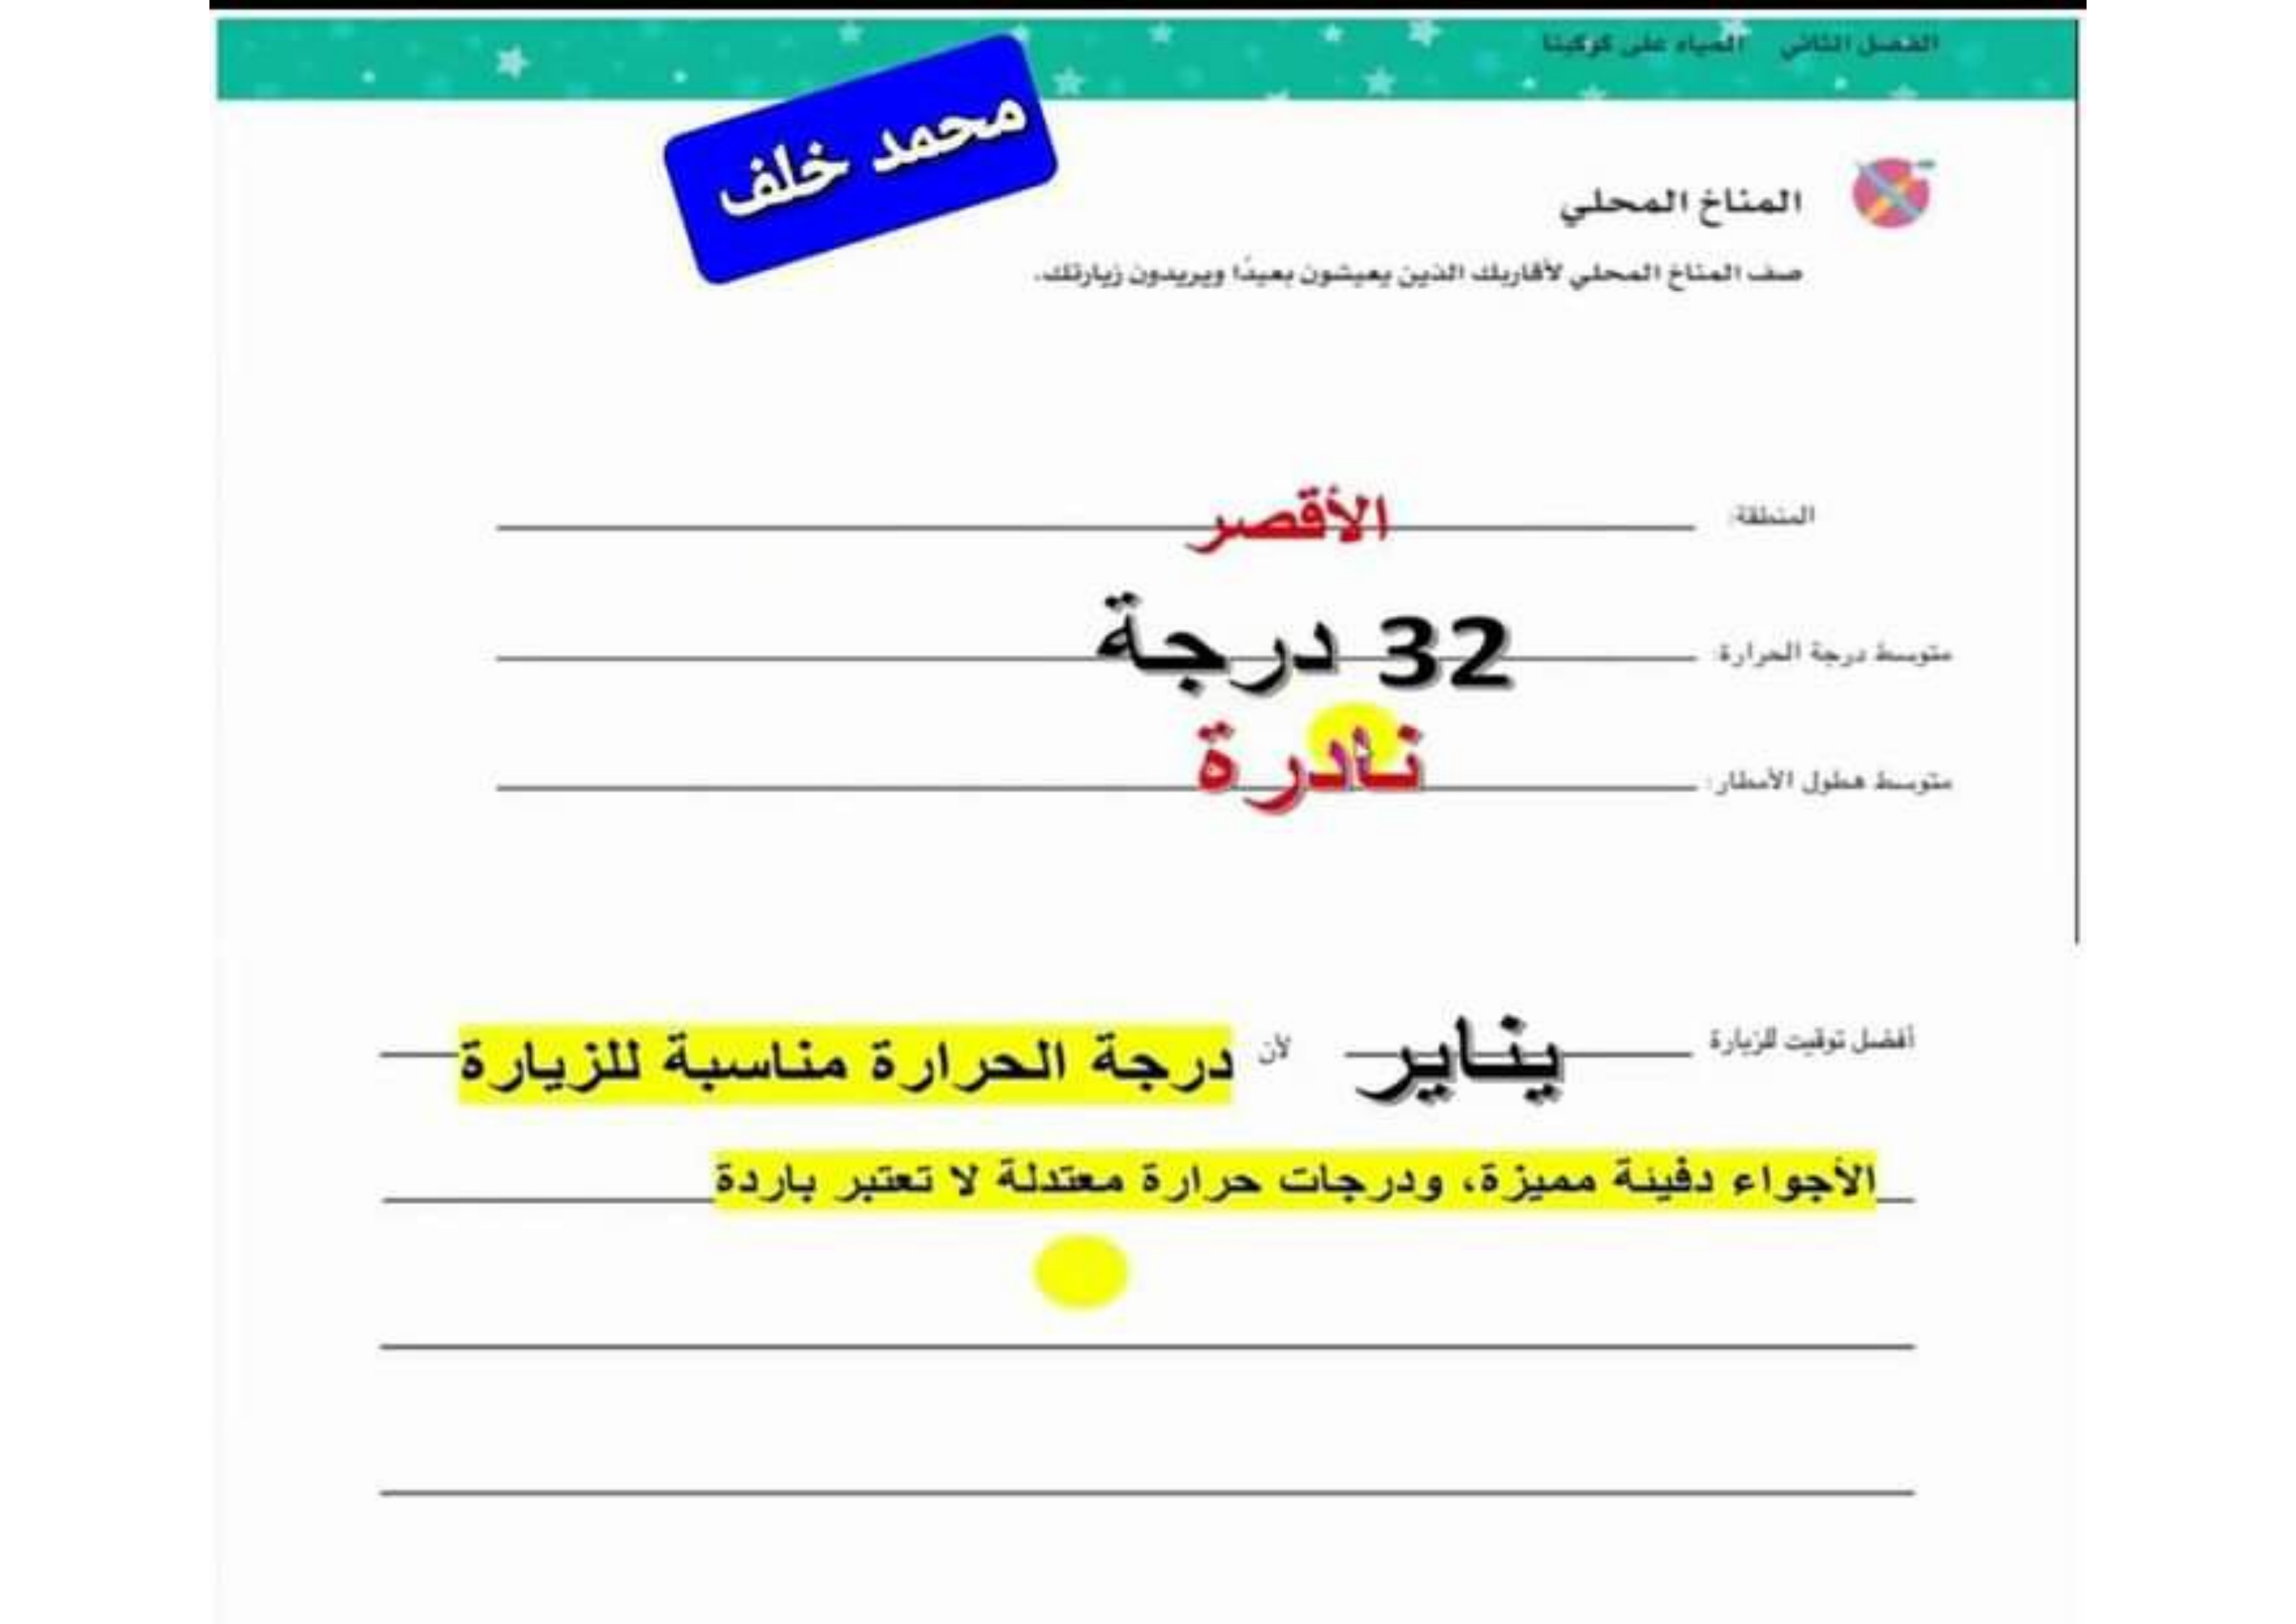 الفصل الثاني المياه على كوكبنا
محمد خلف
المناخ المحلي
صف المناخ المحلي لأقاربك الذين يعيشون بعيدًا ويريدون زيارتك.
المنطقة: الأقصر
متوسط درجة الحرارة: 32 درجة
متوسط هطول الأمطار: نادرة
أفضل توقيت للزيارة يناير لأن درجة الحرارة مناسبة للزيارة
الأجواء دفينة مميزة، ودرجات حرارة معتدلة لا تعتبر باردة